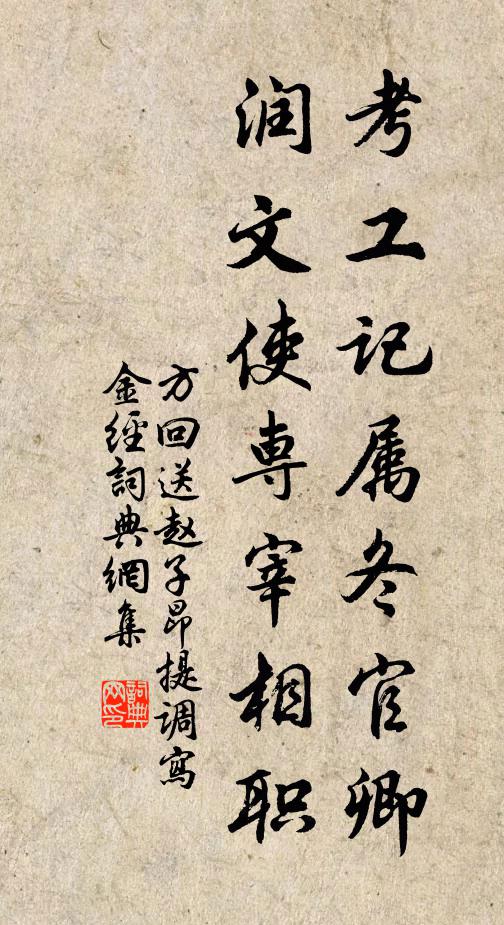 考工记属冬官卿
润文使専宰相职
方回送赵子昂提调写
金經詞典網集
詞典网印